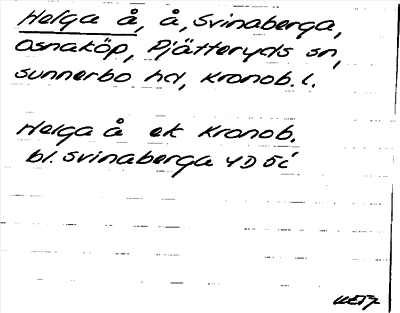 Helga å, å, Svinaberga,
Osnaköp, Pjätteryds sn,
Sunnerbo hd, Kronob. l.
Helga å ek Kronob.
bl. Svinaberga 4D 5i